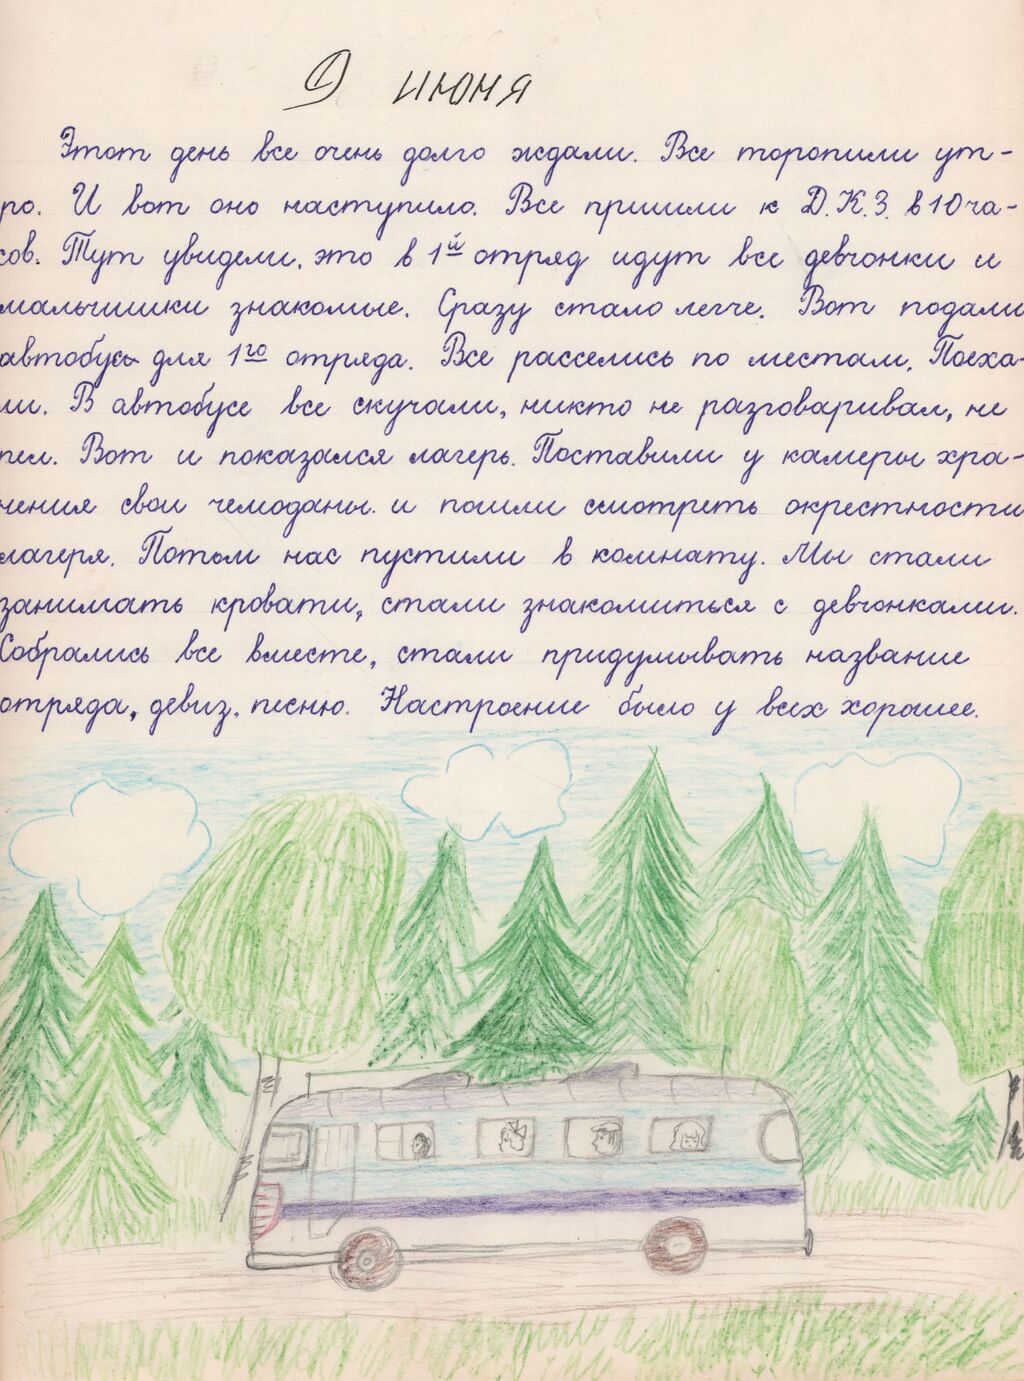 9 июня
Этот день все очень долго ждали. Все торопили ут-
ро. И вот оно наступило. Все пришли к Д.К.З. в 10 ча-
сов. Тут увидели, что в 1й отряд идут все девчонки и
мальчишки знакомые. Сразу стало легче. Вот подали
автобусы для 1го отряда. Все расселись по местам. Поеха-
ли. В автобусе все скучали, никто не разговаривал, не
пел. Вот и показался лагерь. Поставили у камеры хра-
нения свои чемоданы. и пошли смотреть окрестности
лагеря. Потом нас пустили в комнату. Мы стали
занимать кровати, стали знакомиться с девчонками.
Собрались все вместе, стали придумывать название
отряда, девиз, песню. Настроение было у всех хорошее.